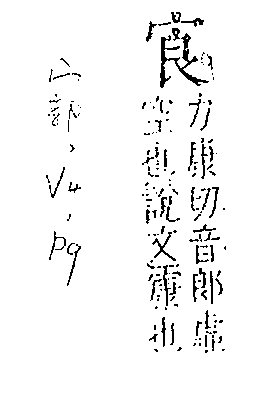 㝗
力康切音郎虛
空也說文㝩也
宀部、V4、P9